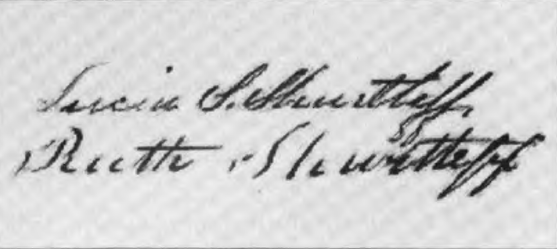 Lucia S. Shurtleff
Ruth Shurtleff